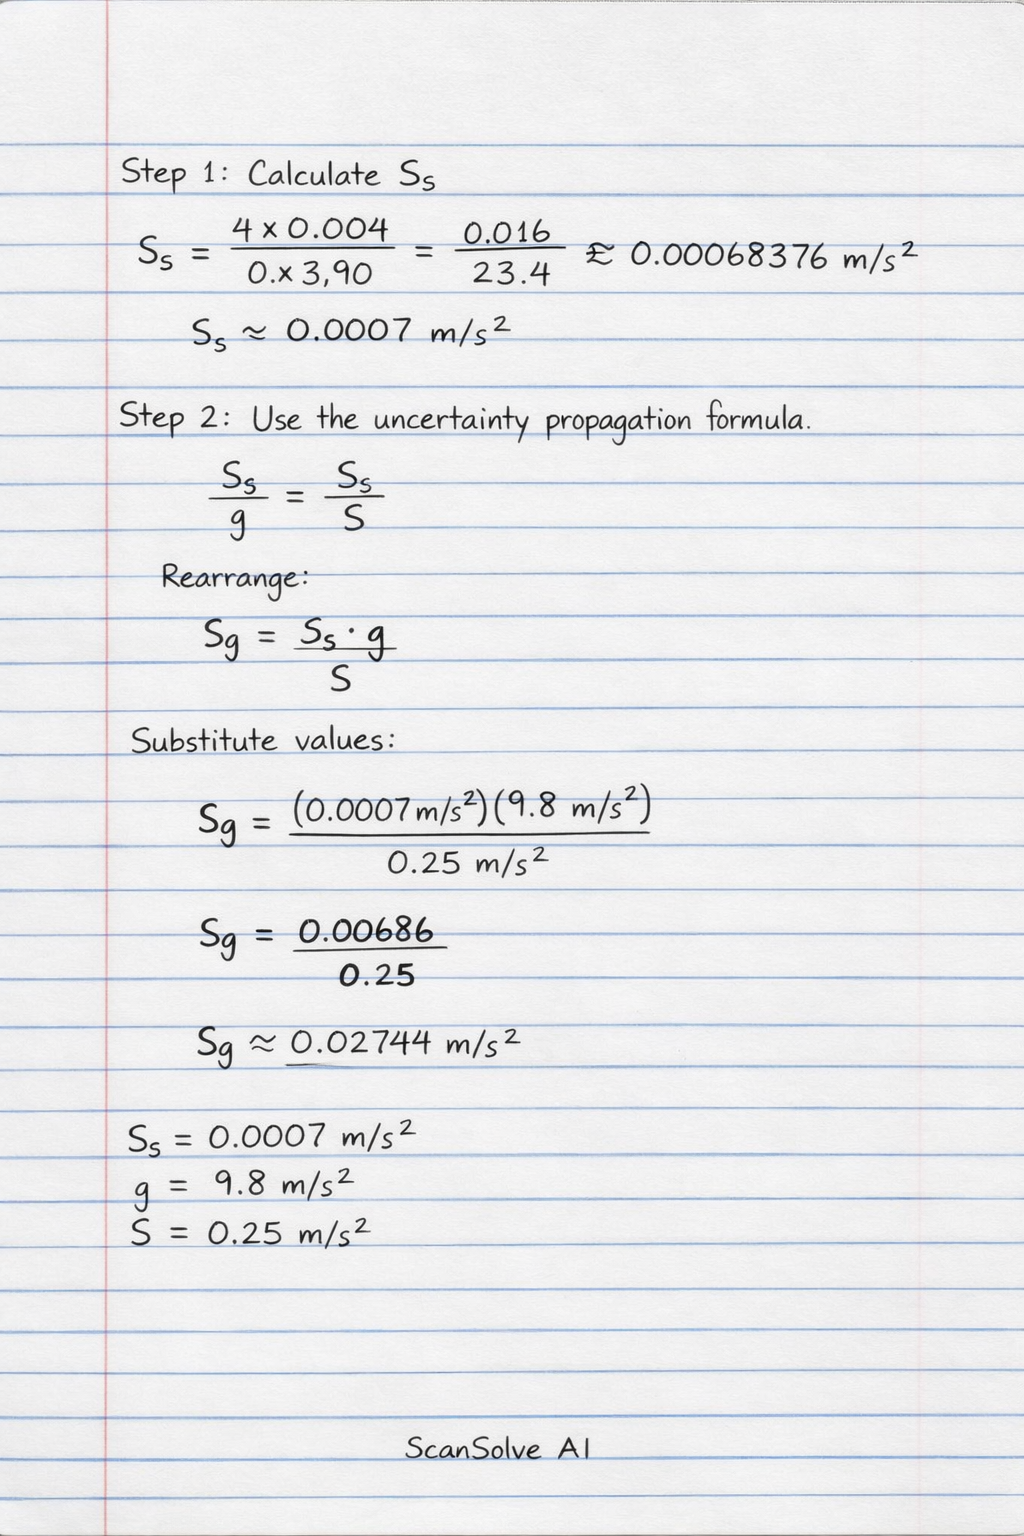 Step 1: Calculate Ss
Ss = 4 x 0.004 / 0.x 3,90 = 0.016 / 23.4 ≈ 0.00068376 m/s²
Ss ≈ 0.0007 m/s²
Step 2: Use the uncertainty propagation formula.
Ss / g = Ss / S
Rearrange:
Sg = Ss · g / S
Substitute values:
Sg = (0.0007 m/s²)(9.8 m/s²) / 0.25 m/s²
Sg = 0.00686 / 0.25
Sg ≈ 0.02744 m/s²
Ss = 0.0007 m/s²
g = 9.8 m/s²
S = 0.25 m/s²
ScanSolve AI